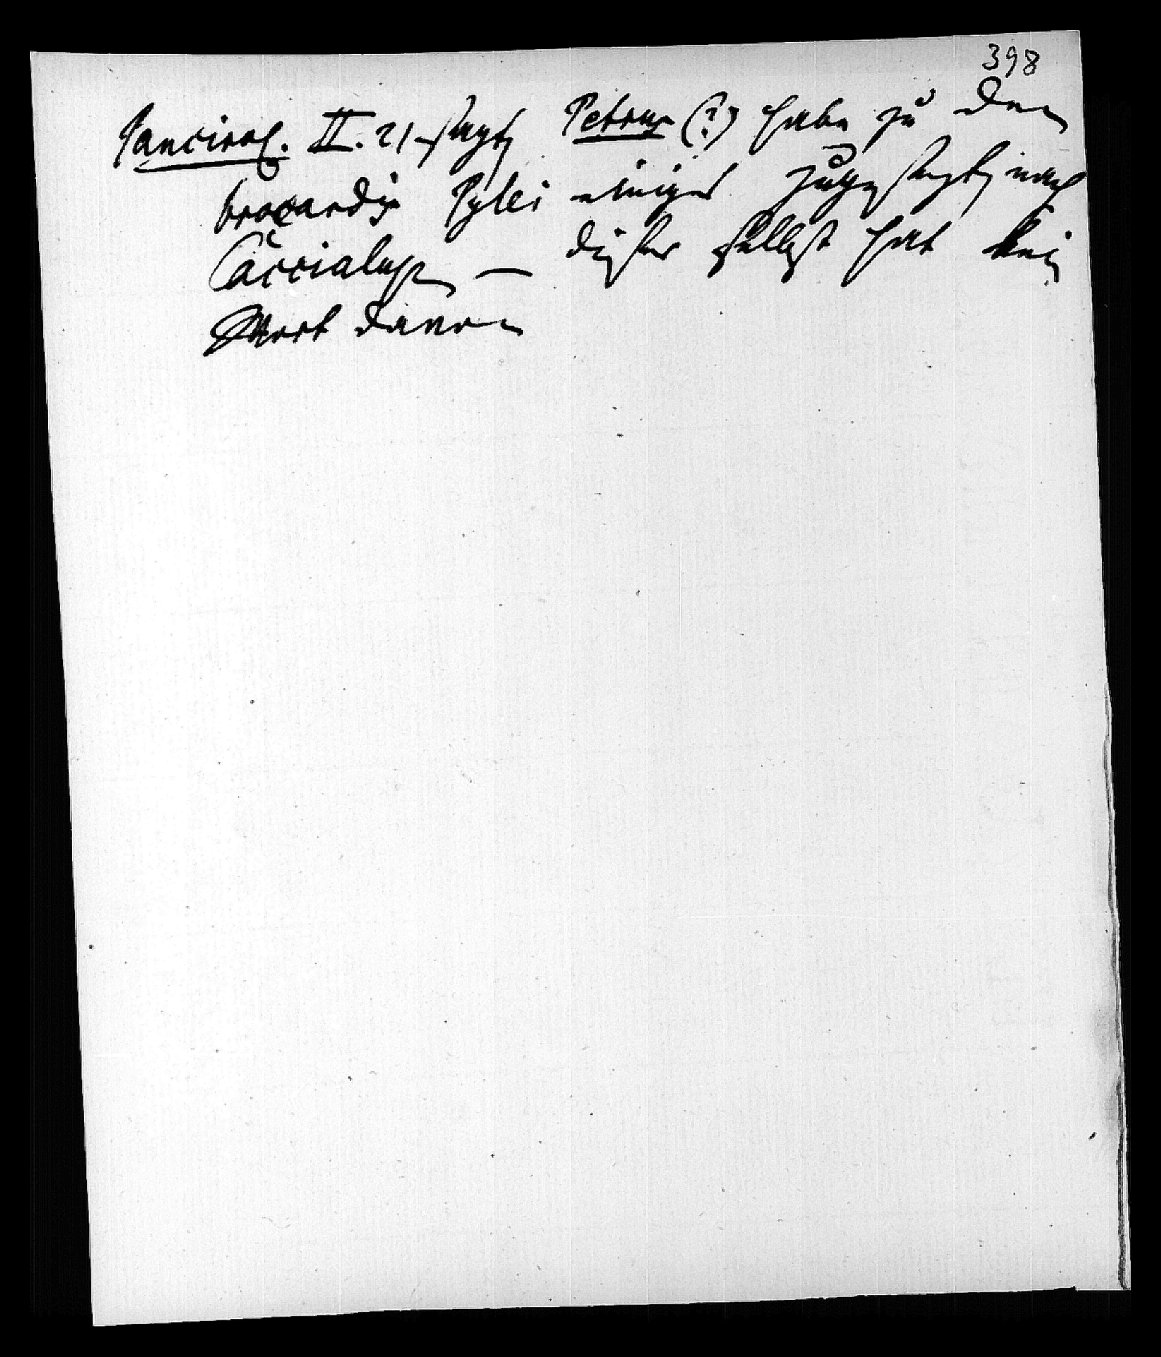 398
Pancirol. II. 21. sagt, Petrus (?) habe zu den
brocardis Pylei einiges zugesetzt, nach
Caccialup. — dieser selbst hat kein
Wort davon